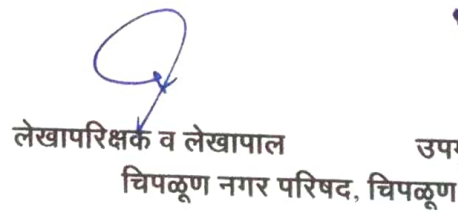 लेखापरिक्षक व लेखापाल
चिपळूण नगर परिषद, चिपळूण